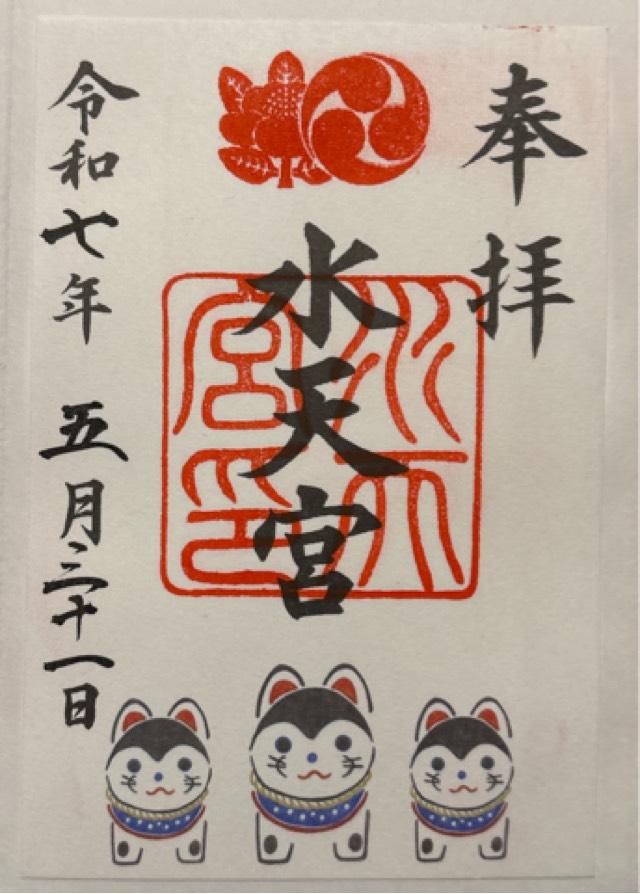 奉拝
水天宮
水天宮印
令和七年 五月三十一日